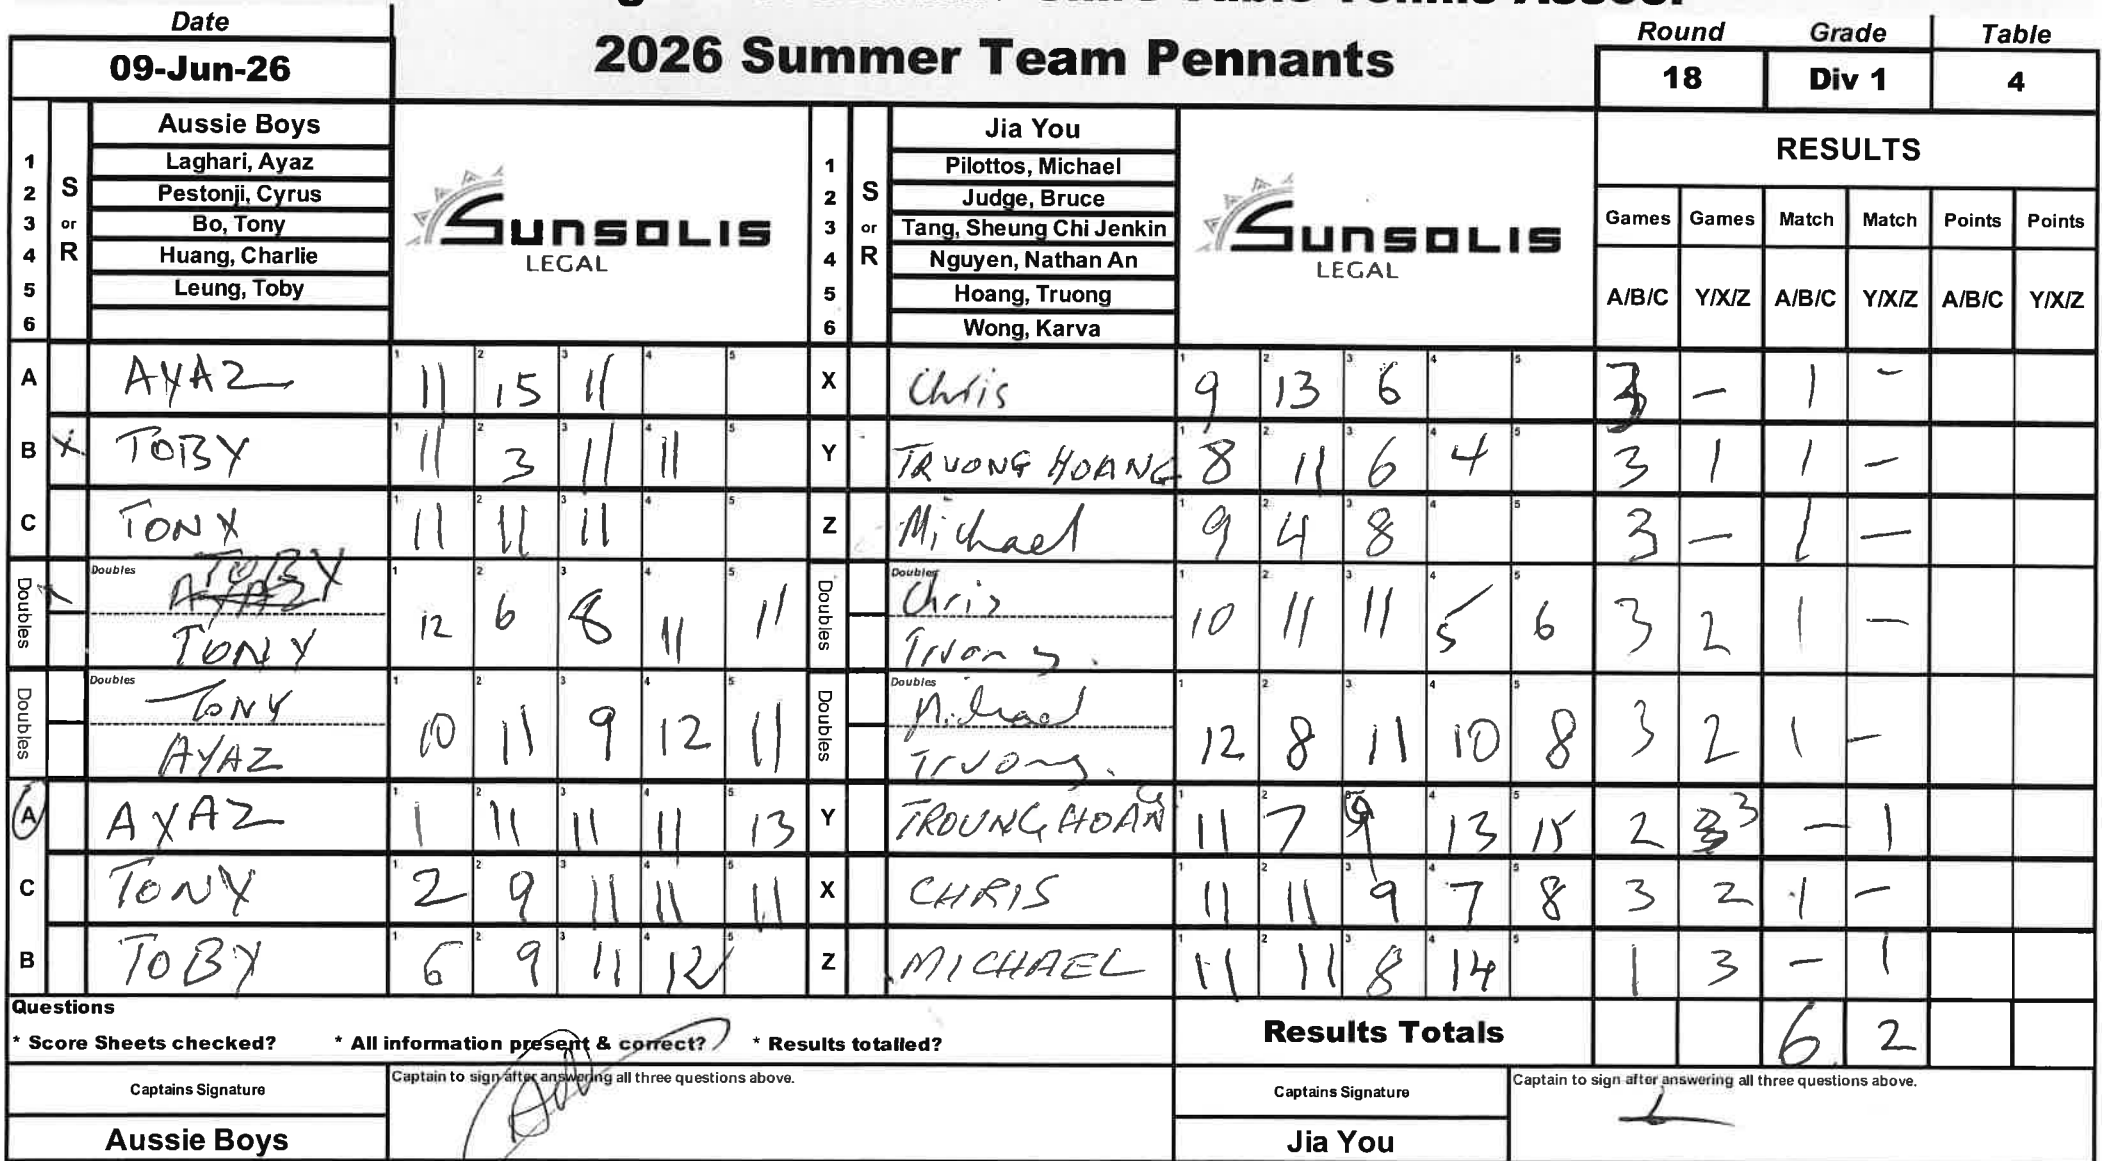 Date
09-Jun-26
2026 Summer Team Pennants
Round Grade Table
18 Div 1 4
S or R
Aussie Boys
1 Laghari, Ayaz
2 Pestonji, Cyrus
3 Bo, Tony
4 Huang, Charlie
5 Leung, Toby
6
SUNSOLIS
LEGAL
S or R
Jia You
1 Pilottos, Michael
2 Judge, Bruce
3 Tang, Sheung Chi Jenkin
4 Nguyen, Nathan An
5 Hoang, Truong
6 Wong, Karva
SUNSOLIS
LEGAL
RESULTS
Games Games Match Match Points Points
A/B/C Y/X/Z A/B/C Y/X/Z A/B/C Y/X/Z
A AYAZ 11 15 11 X Chris 9 13 6 3 - 1 -
B X TOBY 11 3 11 11 Y TRUONG HOANG 8 11 6 4 3 1 1 -
C TONY 11 11 11 Z Michael 9 4 8 3 - 1 -
Doubles Doubles TOBY Doubles Doubles Chris
TONY 12 6 8 11 11 Truong. 10 11 11 5 6 3 2 1 -
Doubles Doubles TONY Doubles Doubles Michael
AYAZ 10 11 9 12 11 Truong. 12 8 11 10 8 3 2 1 -
A AYAZ 1 11 11 11 13 Y TROUNG HOANG 11 7 9 13 15 2 3 - 1
C TONY 2 9 11 11 11 X CHRIS 11 11 9 7 8 3 2 1 -
B TOBY 6 9 11 12 Z MICHAEL 11 11 8 14 1 3 - 1
Questions
* Score Sheets checked? * All information present & correct? * Results totalled?
Results Totals 6 2
Captains Signature
Captain to sign after answering all three questions above.
Aussie Boys
Captains Signature
Captain to sign after answering all three questions above.
Jia You